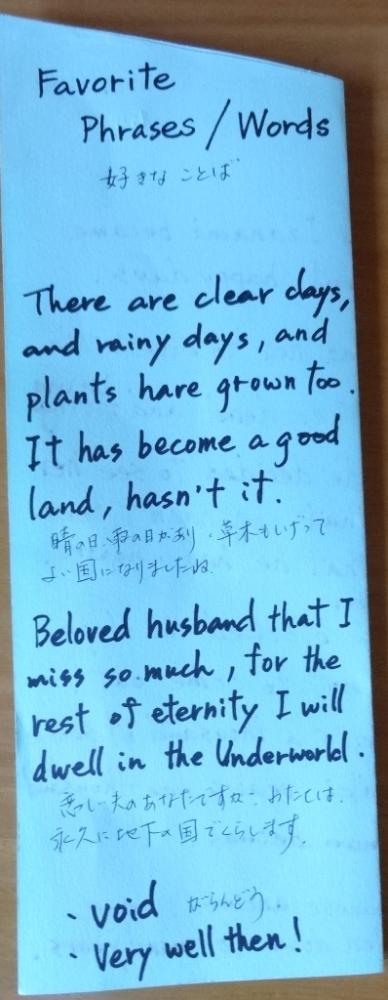 Favorite
Phrases / Words
好きな ことば
There are clear days,
and rainy days, and
plants have grown too.
It has become a good
land, hasn't it.
晴の日、雨の日があり、草木もしげって
よい国になりましたね
Beloved husband that I
miss so much, for the
rest of eternity I will
dwell in the Underworld.
恋しい夫のあなたですが、わたしは、
永久に地下の国でくらします。
・void がらんどう
・Very well then!